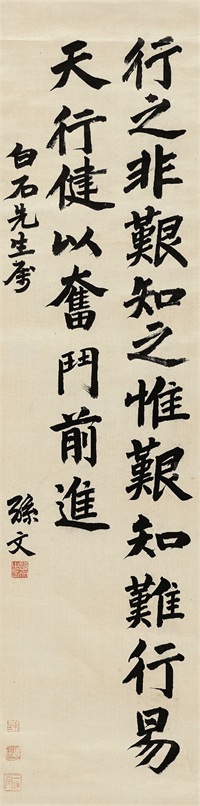 行之非艱知之惟艱知難行易
天行健以奮鬥前進
白石先生屬
孫文